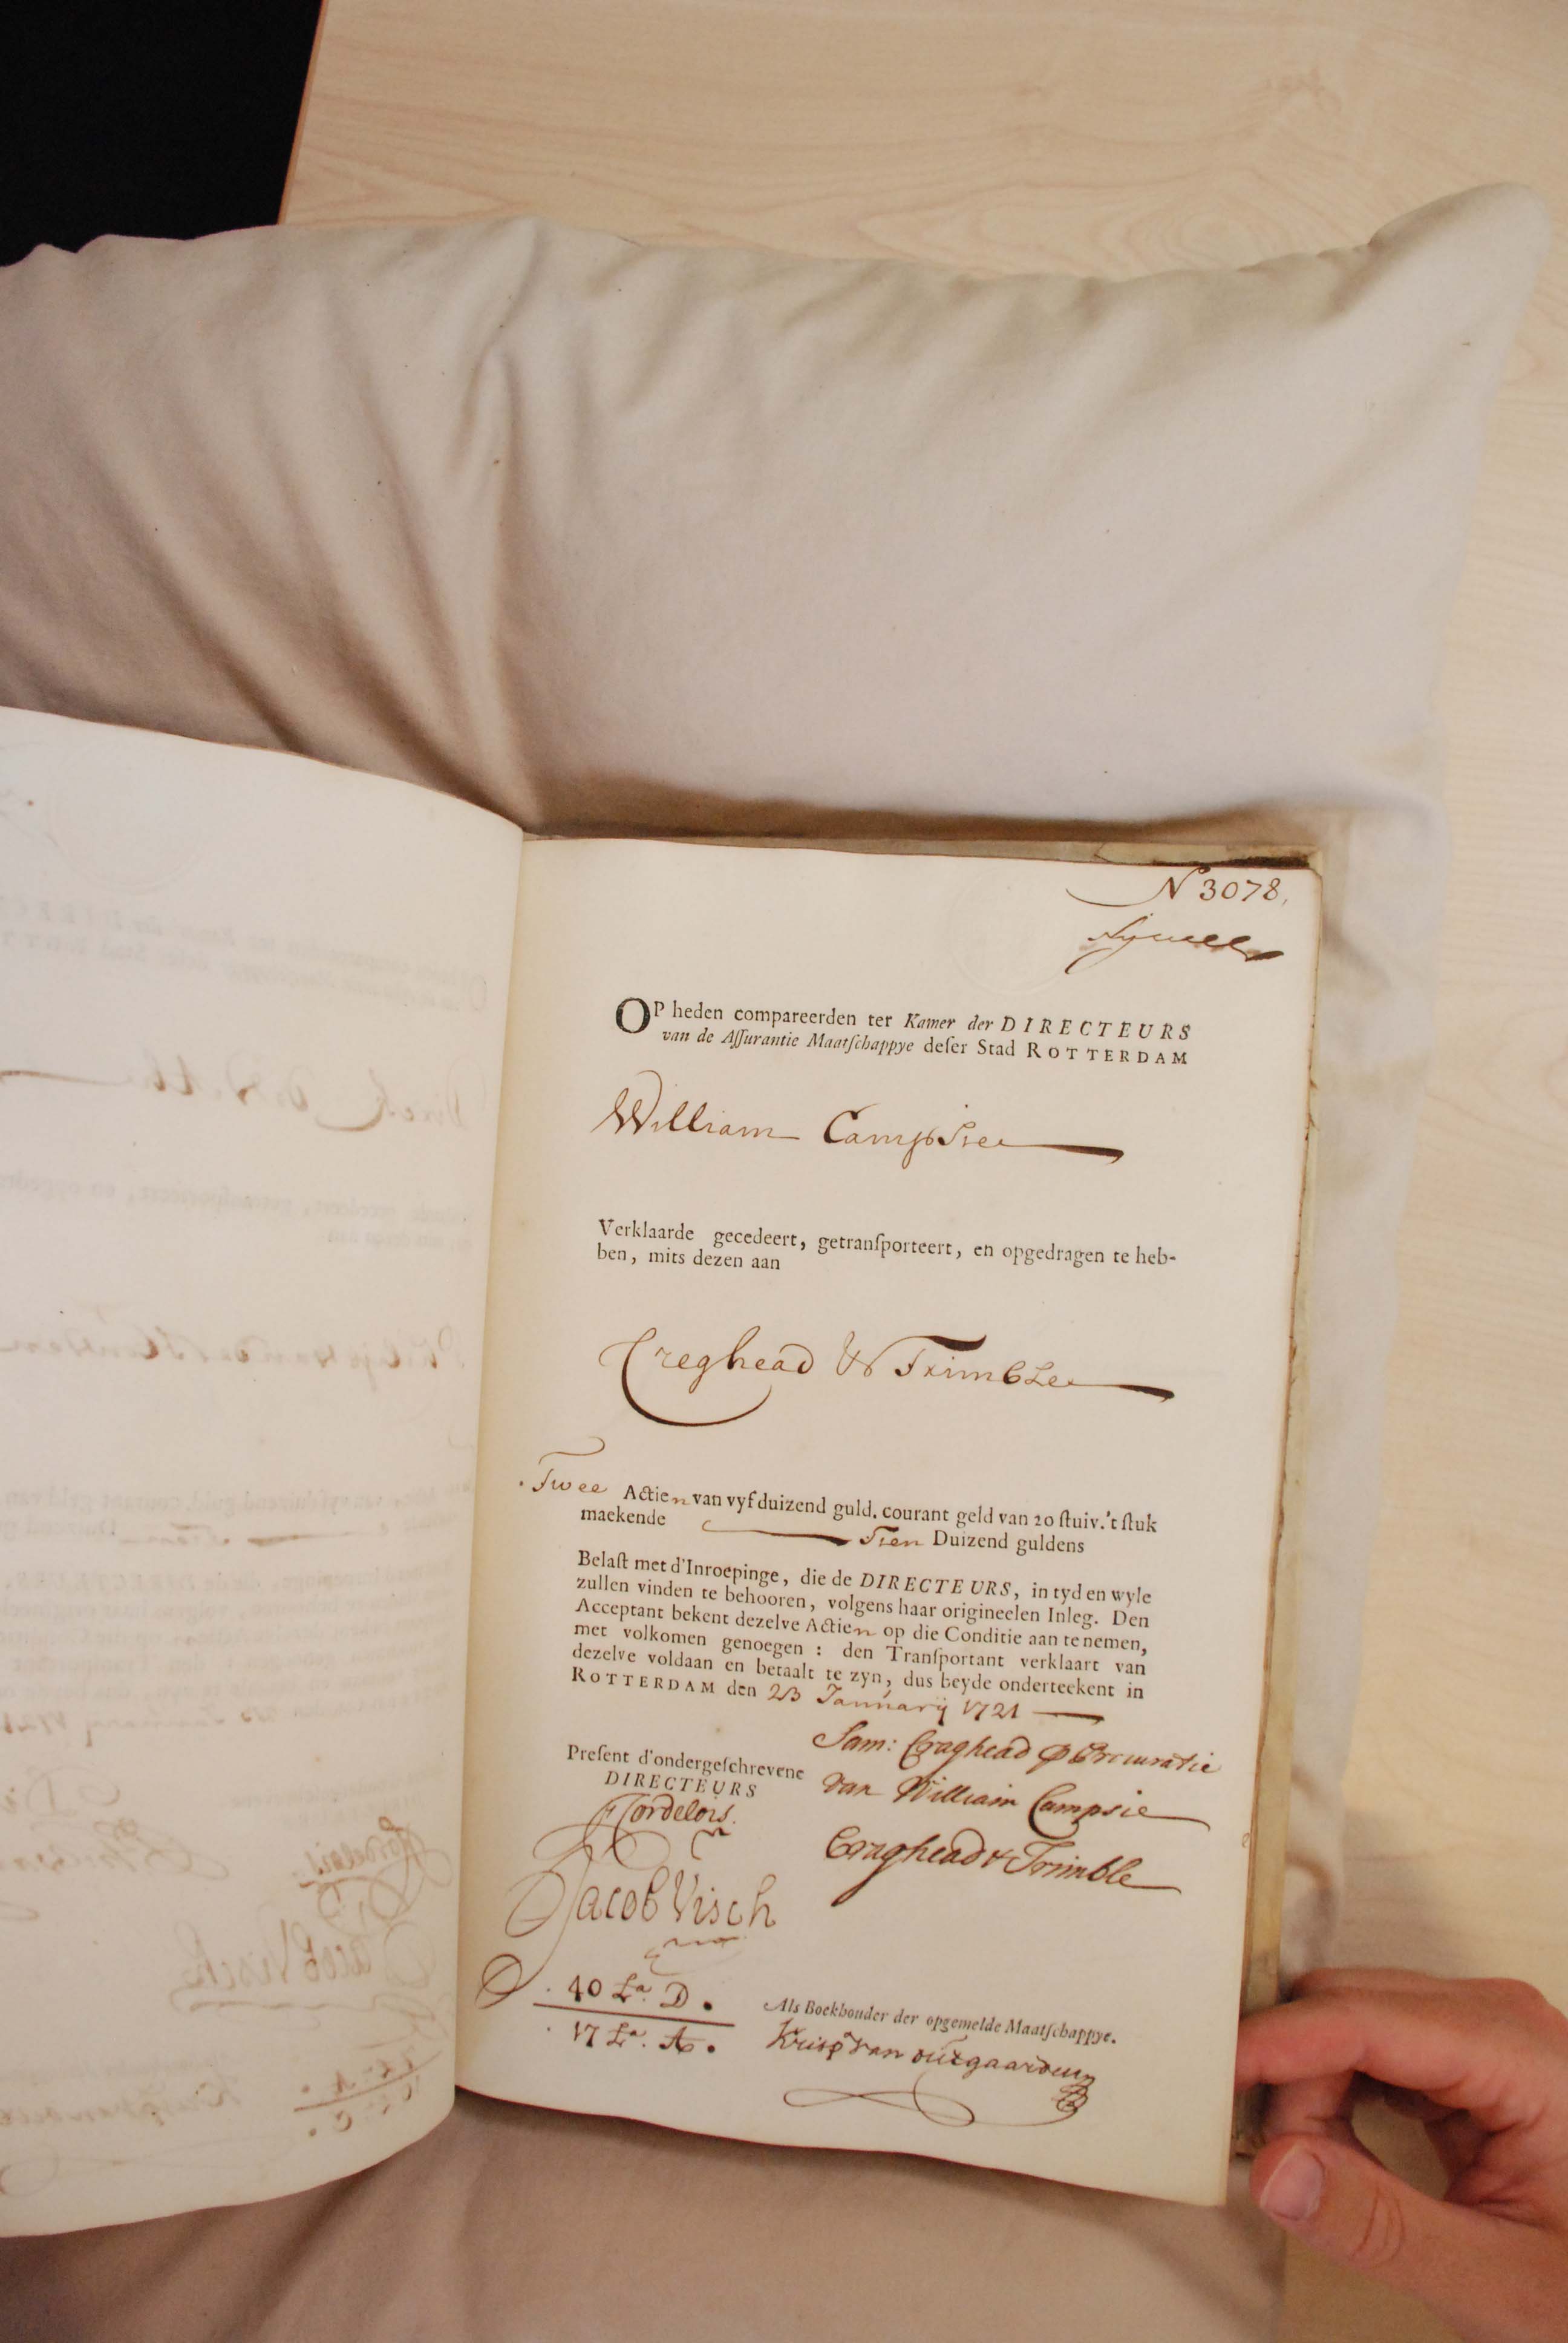 N 3078.
OP heden compareerden ter Kamer der DIRECTEURS
van de Aſſurantie Maatſchappye deſer Stad ROTTERDAM
William Campsie
Verklaarde gecedeert, getranſporteert, en opgedragen te heb-
ben, mits dezen aan
Creghead & Trimble
Twee Actien van vyfduizend guld. courant geld van 20 ſtuiv. 't ſtuk
maekende Tien Duizend guldens
Belaſt met d'Inroepinge, die de DIRECTEURS, in tyd en wyle
zullen vinden te behooren, volgens haar origineelen Inleg. Den
Acceptant bekent dezelve Actien op die Conditie aan te nemen,
met volkomen genoegen : den Tranſportant verklaart van
dezelve voldaan en betaalt te zyn, dus beyde onderteekent in
ROTTERDAM den 23 Januarij 1721
Sam: Craghead p Procuratie
van William Campsie
Craghead & Trimble
Preſent d'ondergeſchrevene
DIRECTEURS
Cordelois.
Jacob Visch
40 La. D.
17 La. A.
Als Boekhouder der opgemelde Maatſchappye.
Krisp van outgaarden